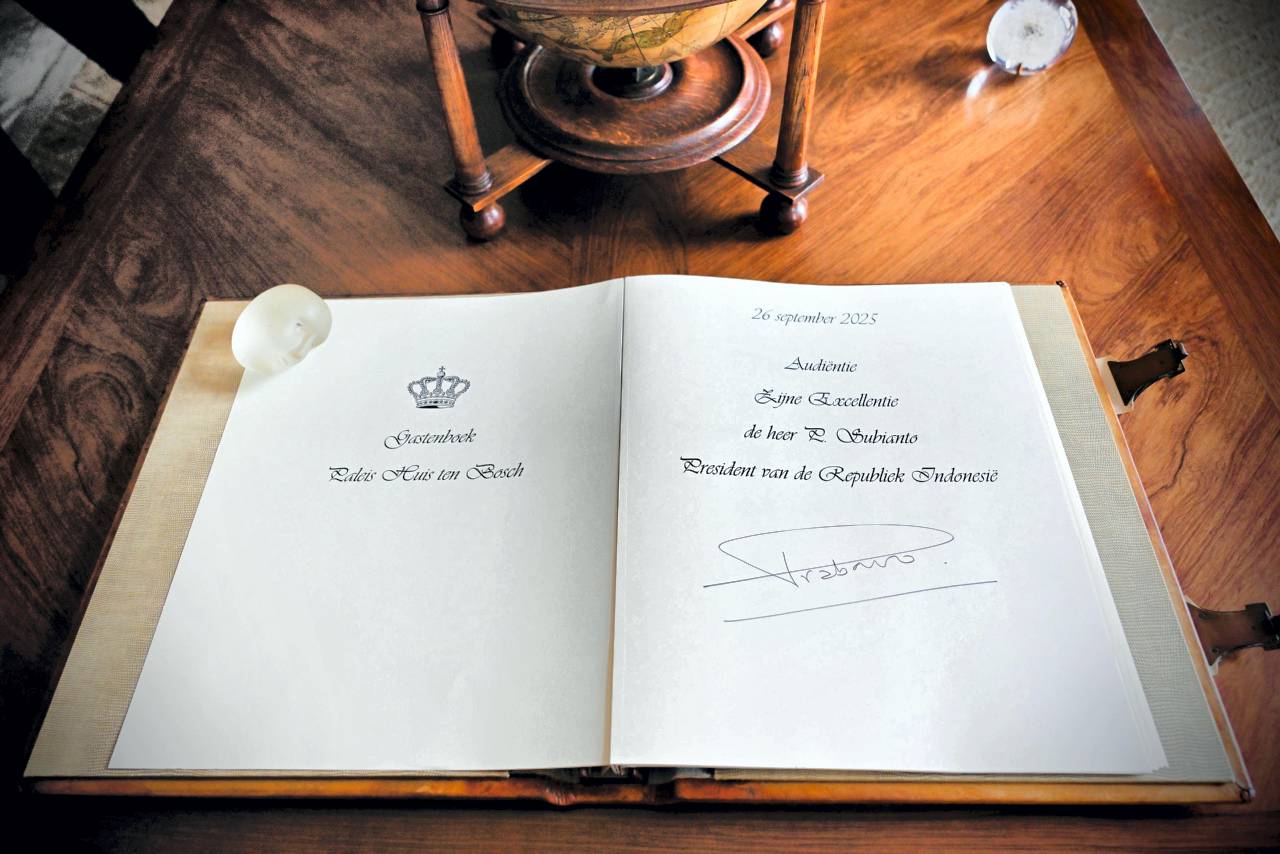 Gastenboek
Paleis Huis ten Bosch
26 september 2025
Audiëntie
Zijne Excellentie
de heer P. Subianto
President van de Republiek Indonesië
Prabowo.